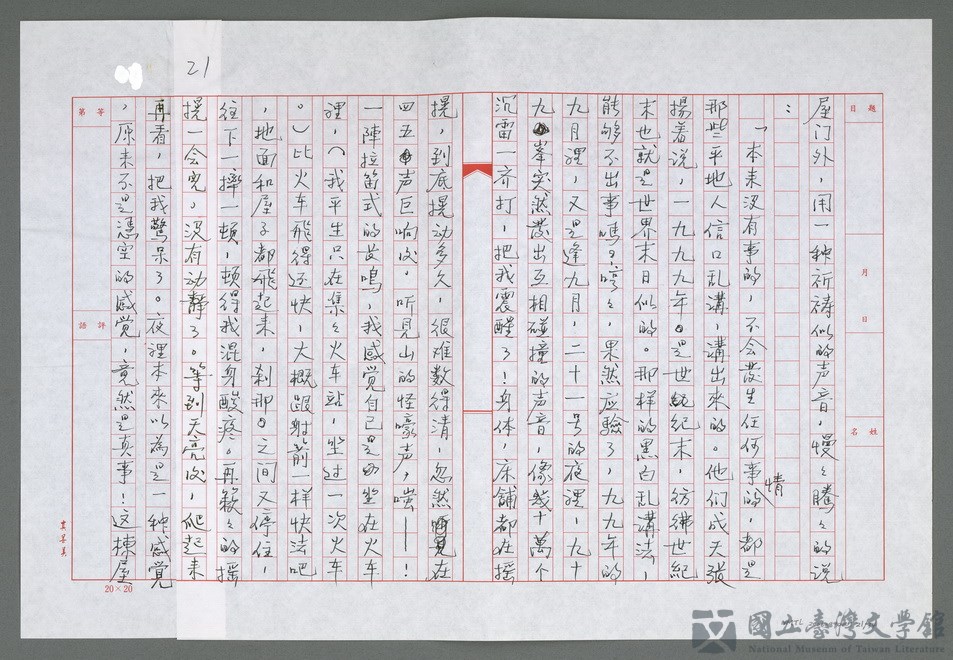 21
題目
月 日
姓名
屋门外，用一种祈祷似的声音，慢々腾々的说
：
「本来没有事的，不会发生任何事情的，都是
那些平地人信口乱講，講出來的。他们成天張
揚着说，一九九九年是世紀末，彷彿世紀
末也就是世界末日似的。那样的黑白乱講法，
能够不出事嗎？哼々，果然应驗了，九九年的
九月裡，又是逢九月，二十一号的夜裡，九十
九峯突然发出互相碰撞的声音，像幾十萬个
沉雷一齐打，把我震醒了！身体，床舖都在摇
晃，到底晃动多久，很难数得清，忽然在
四五声巨响后。听见山的怪嚎声，嗤——！
一陣拉笛式的长鳴，我感觉自己是坐在火车
裡，（我平生只在集々火车站，坐过一次火车
。）比火车飛得还快，大概跟射箭一样快法吧
，地面和屋子都飛起来，刹那之间又停住，
往下一摔一頓，頓得我混身酸疼。再簸々的摇
晃一会兒，没有动静了。等到天亮后，爬起来
再看，把我驚呆了。夜裡本來以為是一种感覚
，原来不是憑空的感觉，竟然是真事！这棟屋
第 等
評語
20×20
國立臺灣文學館
National Museum of Taiwan Literature